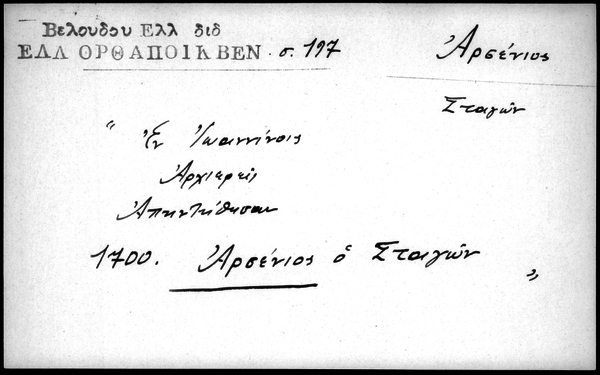 Βελουδου Ελλ διδ
ΕΛΛ ΟΡΘ ΑΠΟΙΚ ΒΕΝ. σ. 197
Ἀρσένιος
Σταγῶν
"Ἐν Ἰωαννίνοις
Ἀρχιερεῖς
Ἀπηντήθησαν
1700. Ἀρσένιος ὁ Σταγῶν "